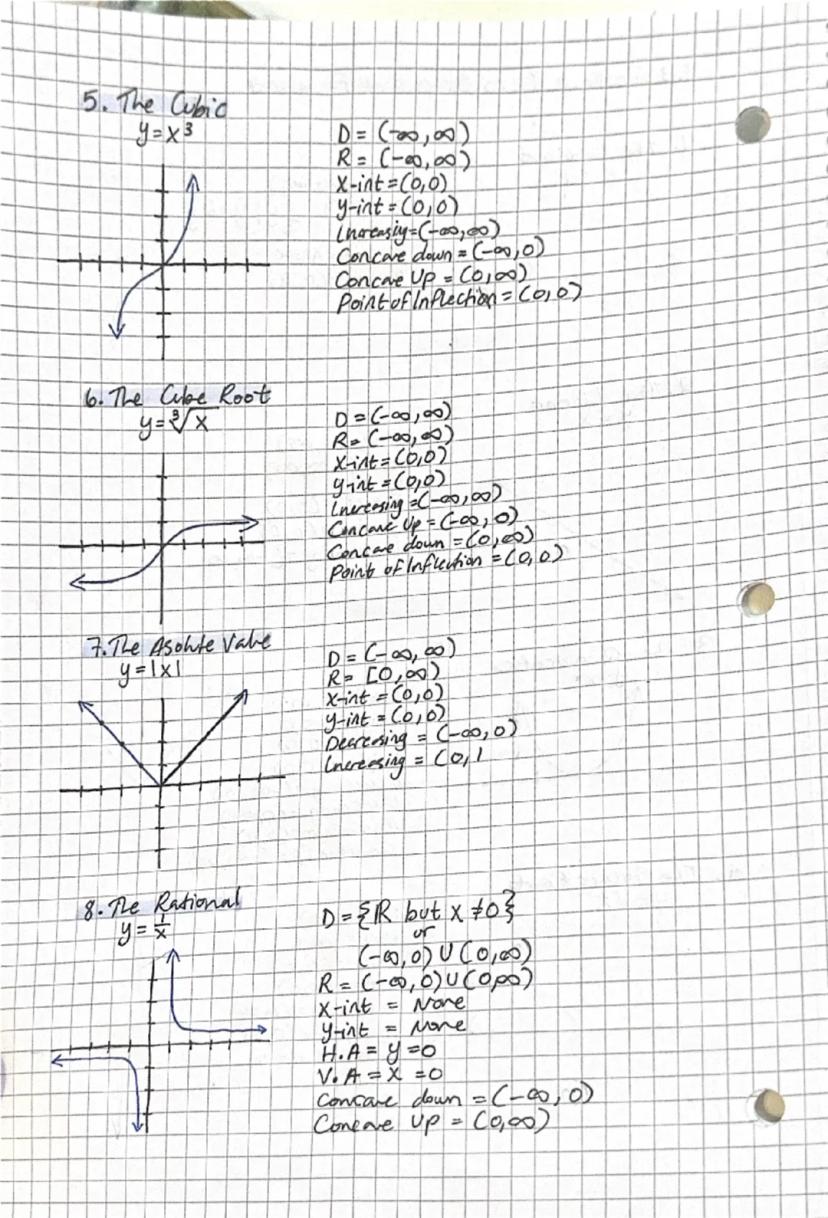 5. The Cubic
y=x³
D = (-∞,∞)
R = (-∞,∞)
x-int = (0,0)
y-int = (0,0)
Increasiy=(-∞,∞)
Concave down = (-∞,0)
Concave Up = (0,∞)
Point of Inflection = (0,0)
6. The Cube Root
y=∛x
D = (-∞,∞)
R = (-∞,∞)
x-int = (0,0)
y-int = (0,0)
Increasing = (-∞,∞)
Concave Up = (-∞,0)
Concave down = (0,∞)
Point of Inflection = (0,0)
7. The Asolute Value
y=|x|
D = (-∞,∞)
R = [0,∞)
x-int = (0,0)
y-int = (0,0)
Decreasing = (-∞,0)
Increasing = (0,1
8. The Rational
y = 1/x
D = {ℝ but x ≠0}
or
(-∞,0) U (0,∞)
R = (-∞,0) U (0,∞)
x-int = None
y-int = None
H.A = y =0
V.A = x =0
Concave down = (-∞,0)
Concave Up = (0,∞)